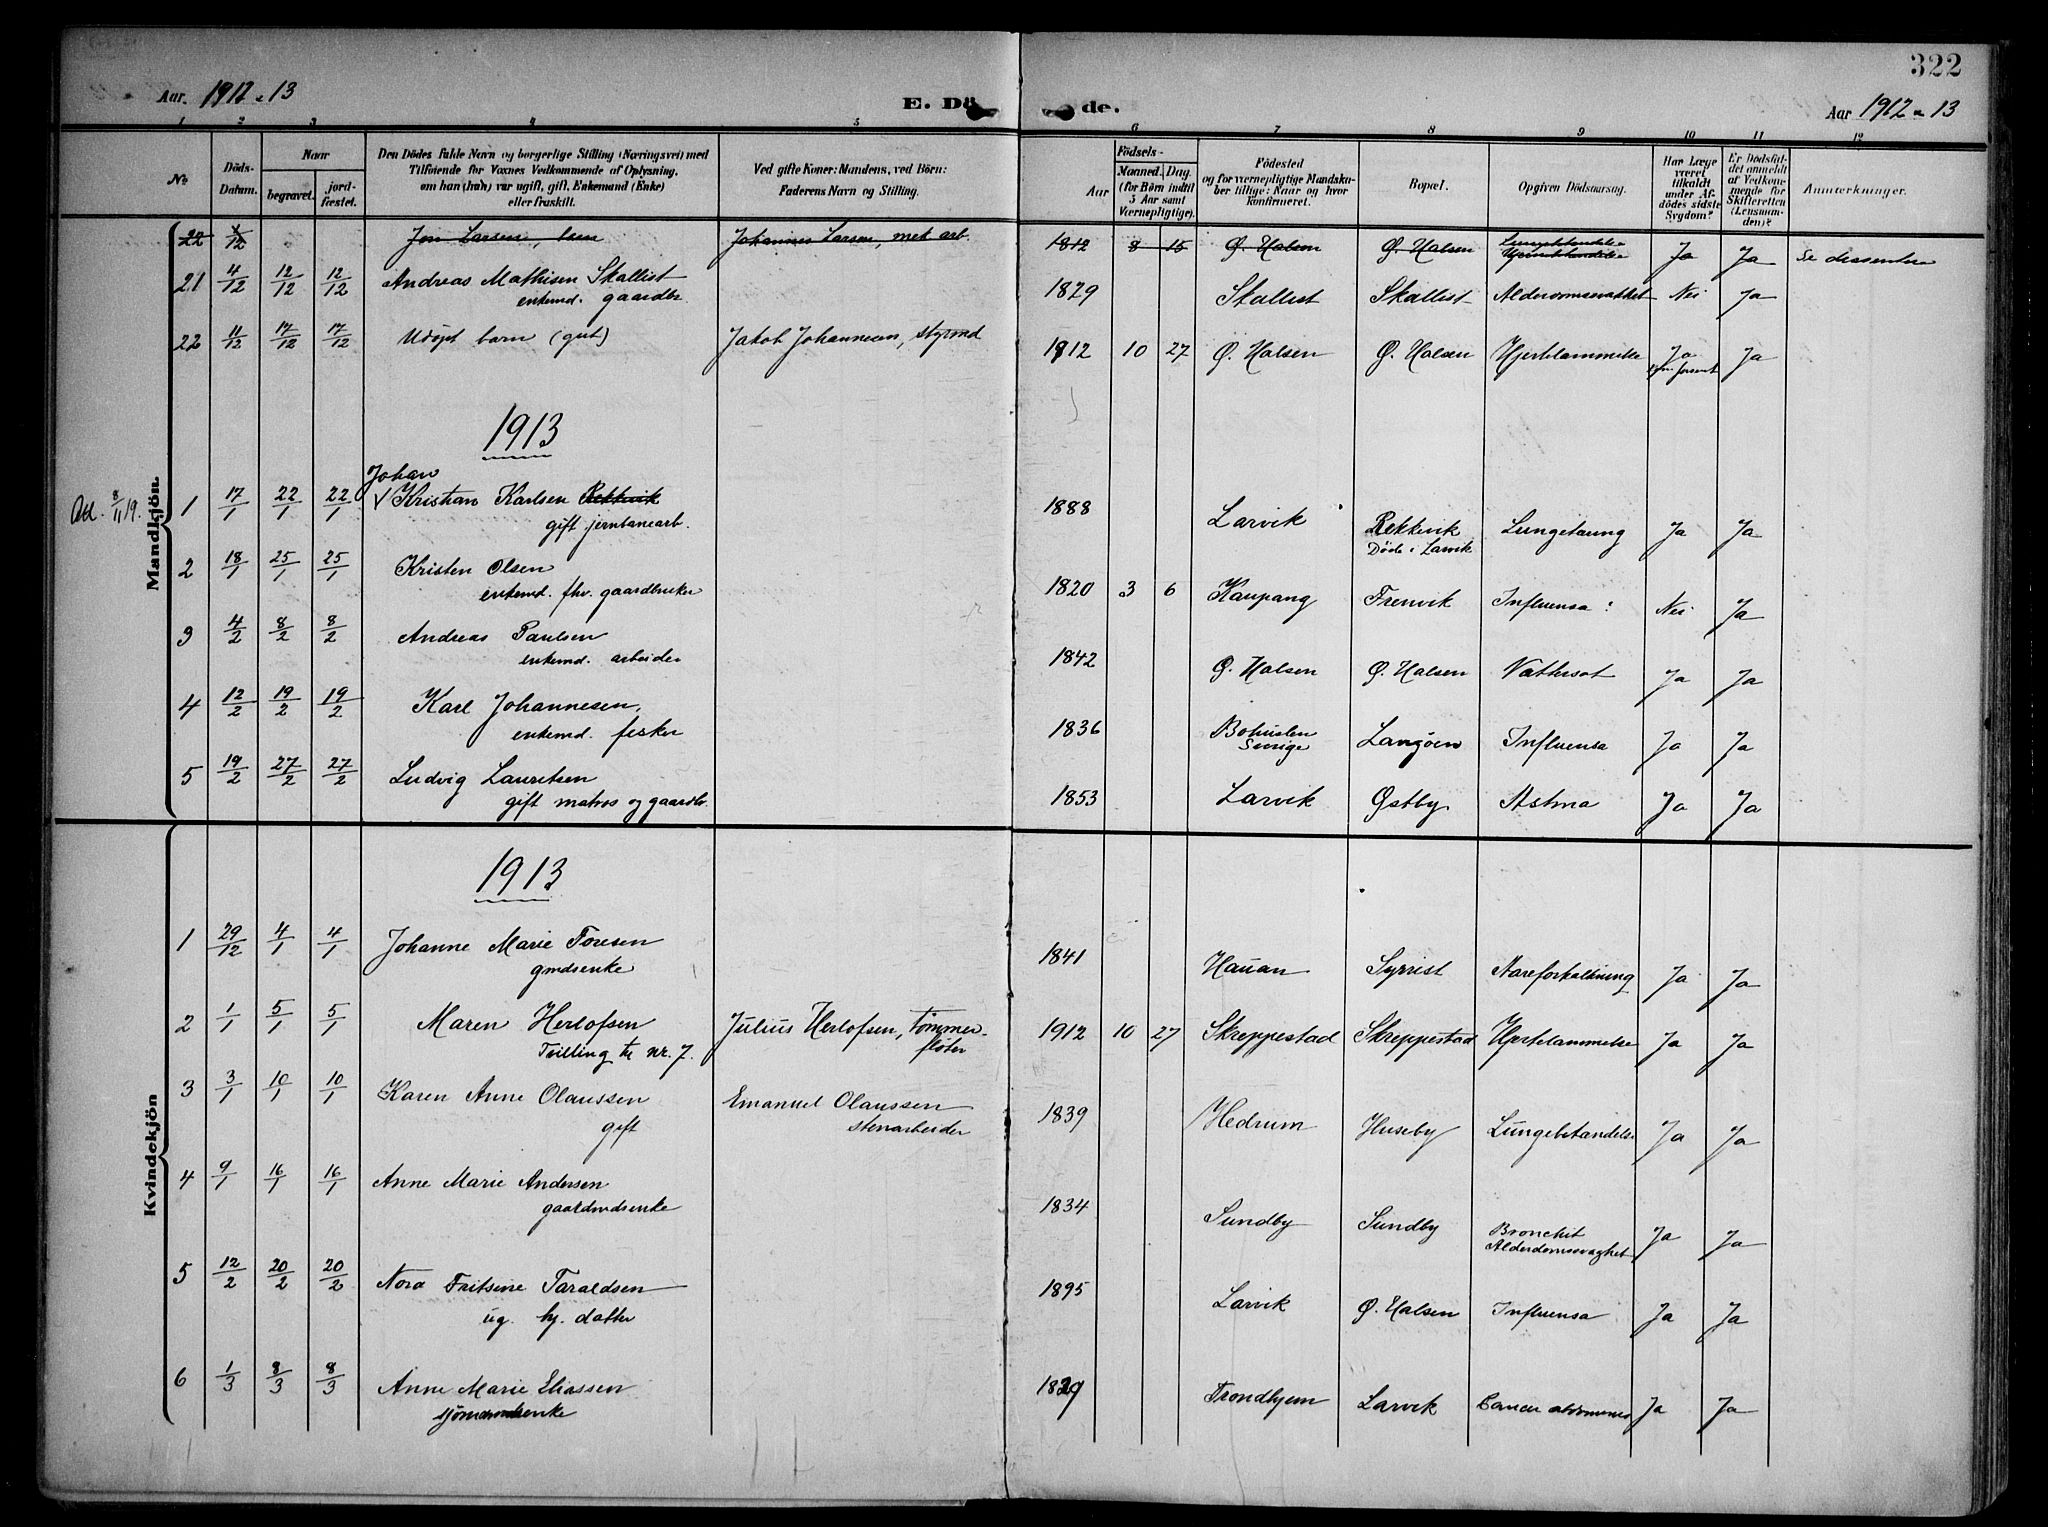 322
Aar. 1912-13
E. Dö
de.
Aar 1912-13
1 2 3 4 5 6 7 8 9 10 11 12
No
Döds-
Datum.
Naar
begravet.
jord-
fæstet.
Den Dödes fulde Navn og borgerlige Stilling (Næringsvei) med
Tilföiende for Voxnes Vedkommende af Oplysning,
om han (hun) var ugift, gift, Enkemand (Enke)
eller fraskilt.
Ved gifte Koner: Mandens, ved Börn:
Faderens Navn og Stilling.
Födsels-
Aar
Maaned. Dag.
(for Börn indtil
5 Aar samt
Værnepligtige).
Födested
og for værnepligtige Mandska-
ber tillige: Naar og hvor
konfirmeret.
Bopæl.
Opgiven Dödsaarsag.
Har Læge
været
tilkaldt
under Af-
dödes sidste
Sygdom?
Er Dödsfal-
det anmeldt
af Vedkom-
mende for
Skifteretten
(Lensman-
den)?
Anmærkninger.
Mandkjön.
22 12 Jon Larsen, Johannes Larsen, mek arb. 1912 8 15 Ø. Halsen Ø. Halsen Lungebetændelse Ja Ja
21 4/12 12/12 12/12 Andreas Mathisen Skallist 1829 Skallist Skallist Alderdomssvakhet Nei Ja
enkemd. gaardbr
22 11/12 17/12 17/12 Udöpt barn (gut) Jakob Johannessen, styrmd 1912 10 27 Ø. Halsen Ø. Halsen Hjertelammelse Ja Ja
1913
Johan
Att. 8/11 19. 1 17/1 22/1 22/1 Kristian Karlsen Rekkevik 1888 Larvik Rekkevik Lungetæring Ja Ja
gift jernbanearb. Døde i Larvik
2 18/1 25/1 25/1 Kristen Olsen 1820 3 6 Kaupang Frenvik Influensa Nei Ja
enkemd. fhv. gaardbruker
3 4/2 8/2 8/2 Andreas Paulsen 1842 Ø. Halsen Ø. Halsen Vattersot Ja Ja
enkemd. arbeider
4 12/2 19/2 19/2 Karl Johannesen, 1836 Bohuslen Langöen Influensa Ja Ja
enkemd. fisker Sverige
5 19/2 27/2 27/2 Ludvig Lauritsen 1853 Larvik Østby Astma Ja Ja
gift matros og gaardbr.
Kvindekjön
1913
1 29/12 4/1 4/1 Johanne Marie Toresen 1841 Hauan Syrrist Aareforkalkning Ja Ja
gmdsenke
2 1/1 5/1 5/1 Maren Herlofsen Julius Herlofsen, tømmer- 1912 10 27 Skreppestad Skreppestad Hjertelammelse Ja Ja
Tvilling til nr. 7. fløter
3 3/1 10/1 10/1 Karen Anne Olaussen Emanuel Olaussen 1839 Hedrum Huseby Lungebetændelse Ja Ja
gift stenarbeider
4 9/1 16/1 16/1 Anne Marie Andersen 1834 Sundby Sundby Bronchit Ja Ja
gaardmdsenke Alderdomssvaghet
5 12/2 20/2 20/2 Nora Fritsine Taraldsen 1895 Larvik Ø. Halsen Influensa Ja Ja
ug. hj. datter
6 1/3 8/3 8/3 Anne Marie Eliassen 1829 Trondhjem Larvik Cancer abdominis Ja Ja
sjömandsenke